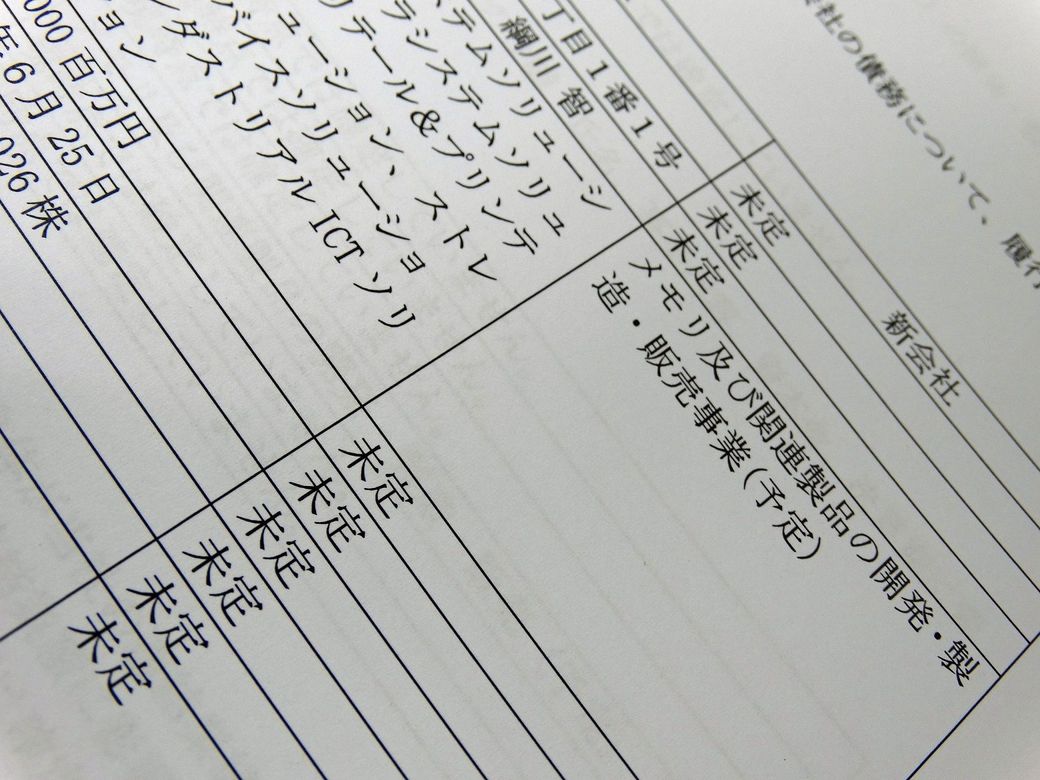 会社の債務について、履行
新会社
丁目1番1号
未定
綱川 智
未定
未定
ステムソリューシ
メモリ及び関連製品の開発・製
ラシステムソリュ
造・販売事業(予定)
リテール&プリンテ
ューション、ストレ
バイスソリューショ
ンダストリアル ICT ソリ
ョン
000 百万円
未定
年 6 月 25 日
未定
026 株
未定
未定
未定
未定